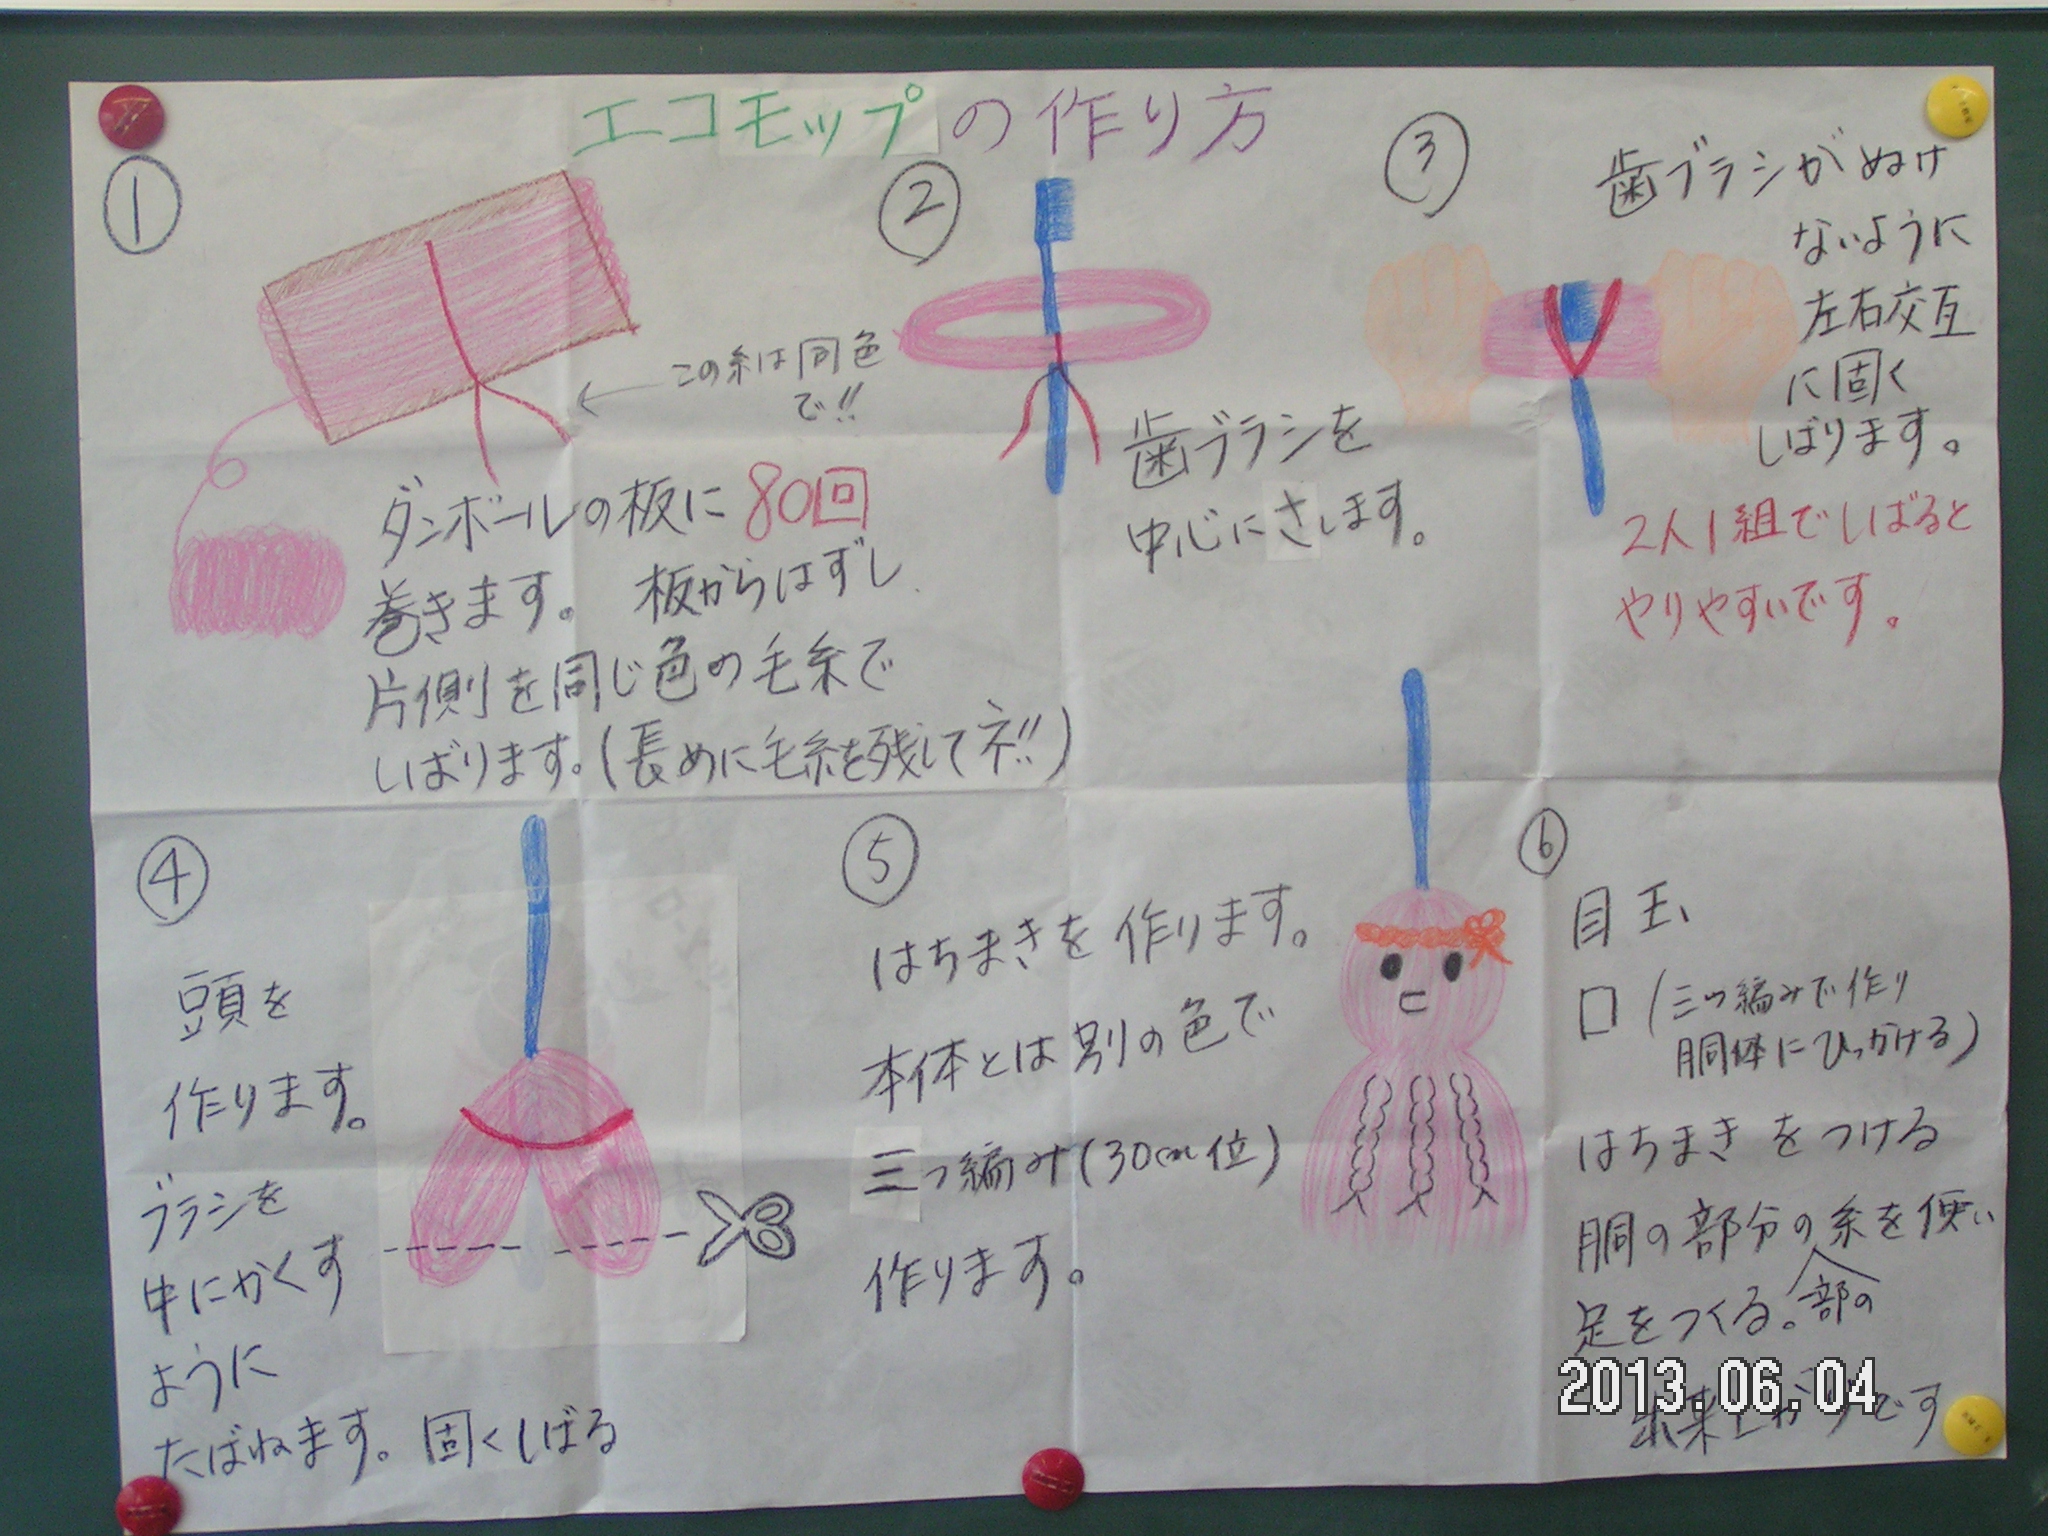 エコモップの作り方
①
この糸は同色
で!!
ダンボールの板に 80回
巻きます。 板からはずし
片側を同じ色の毛糸で
しばります。(長めに毛糸を残してネ!!)
②
歯ブラシを
中心にさします。
③
歯ブラシがぬけ
ないように
左右交互
に固く
しばります。
2人1組でしばると
やりやすいです。
④
頭を
作ります。
ブラシを
中にかくす
ように
たばねます。 固くしばる
⑤
はちまきを作ります。
本体とは別の色で
三つ編み(30cm位)
作ります。
⑥
目玉、
口(三つ編みで作り
胴体にひっかける)
はちまきをつける
胴の部分の糸を使い
足をつくる。部の
出来上がりです
2013.06.04